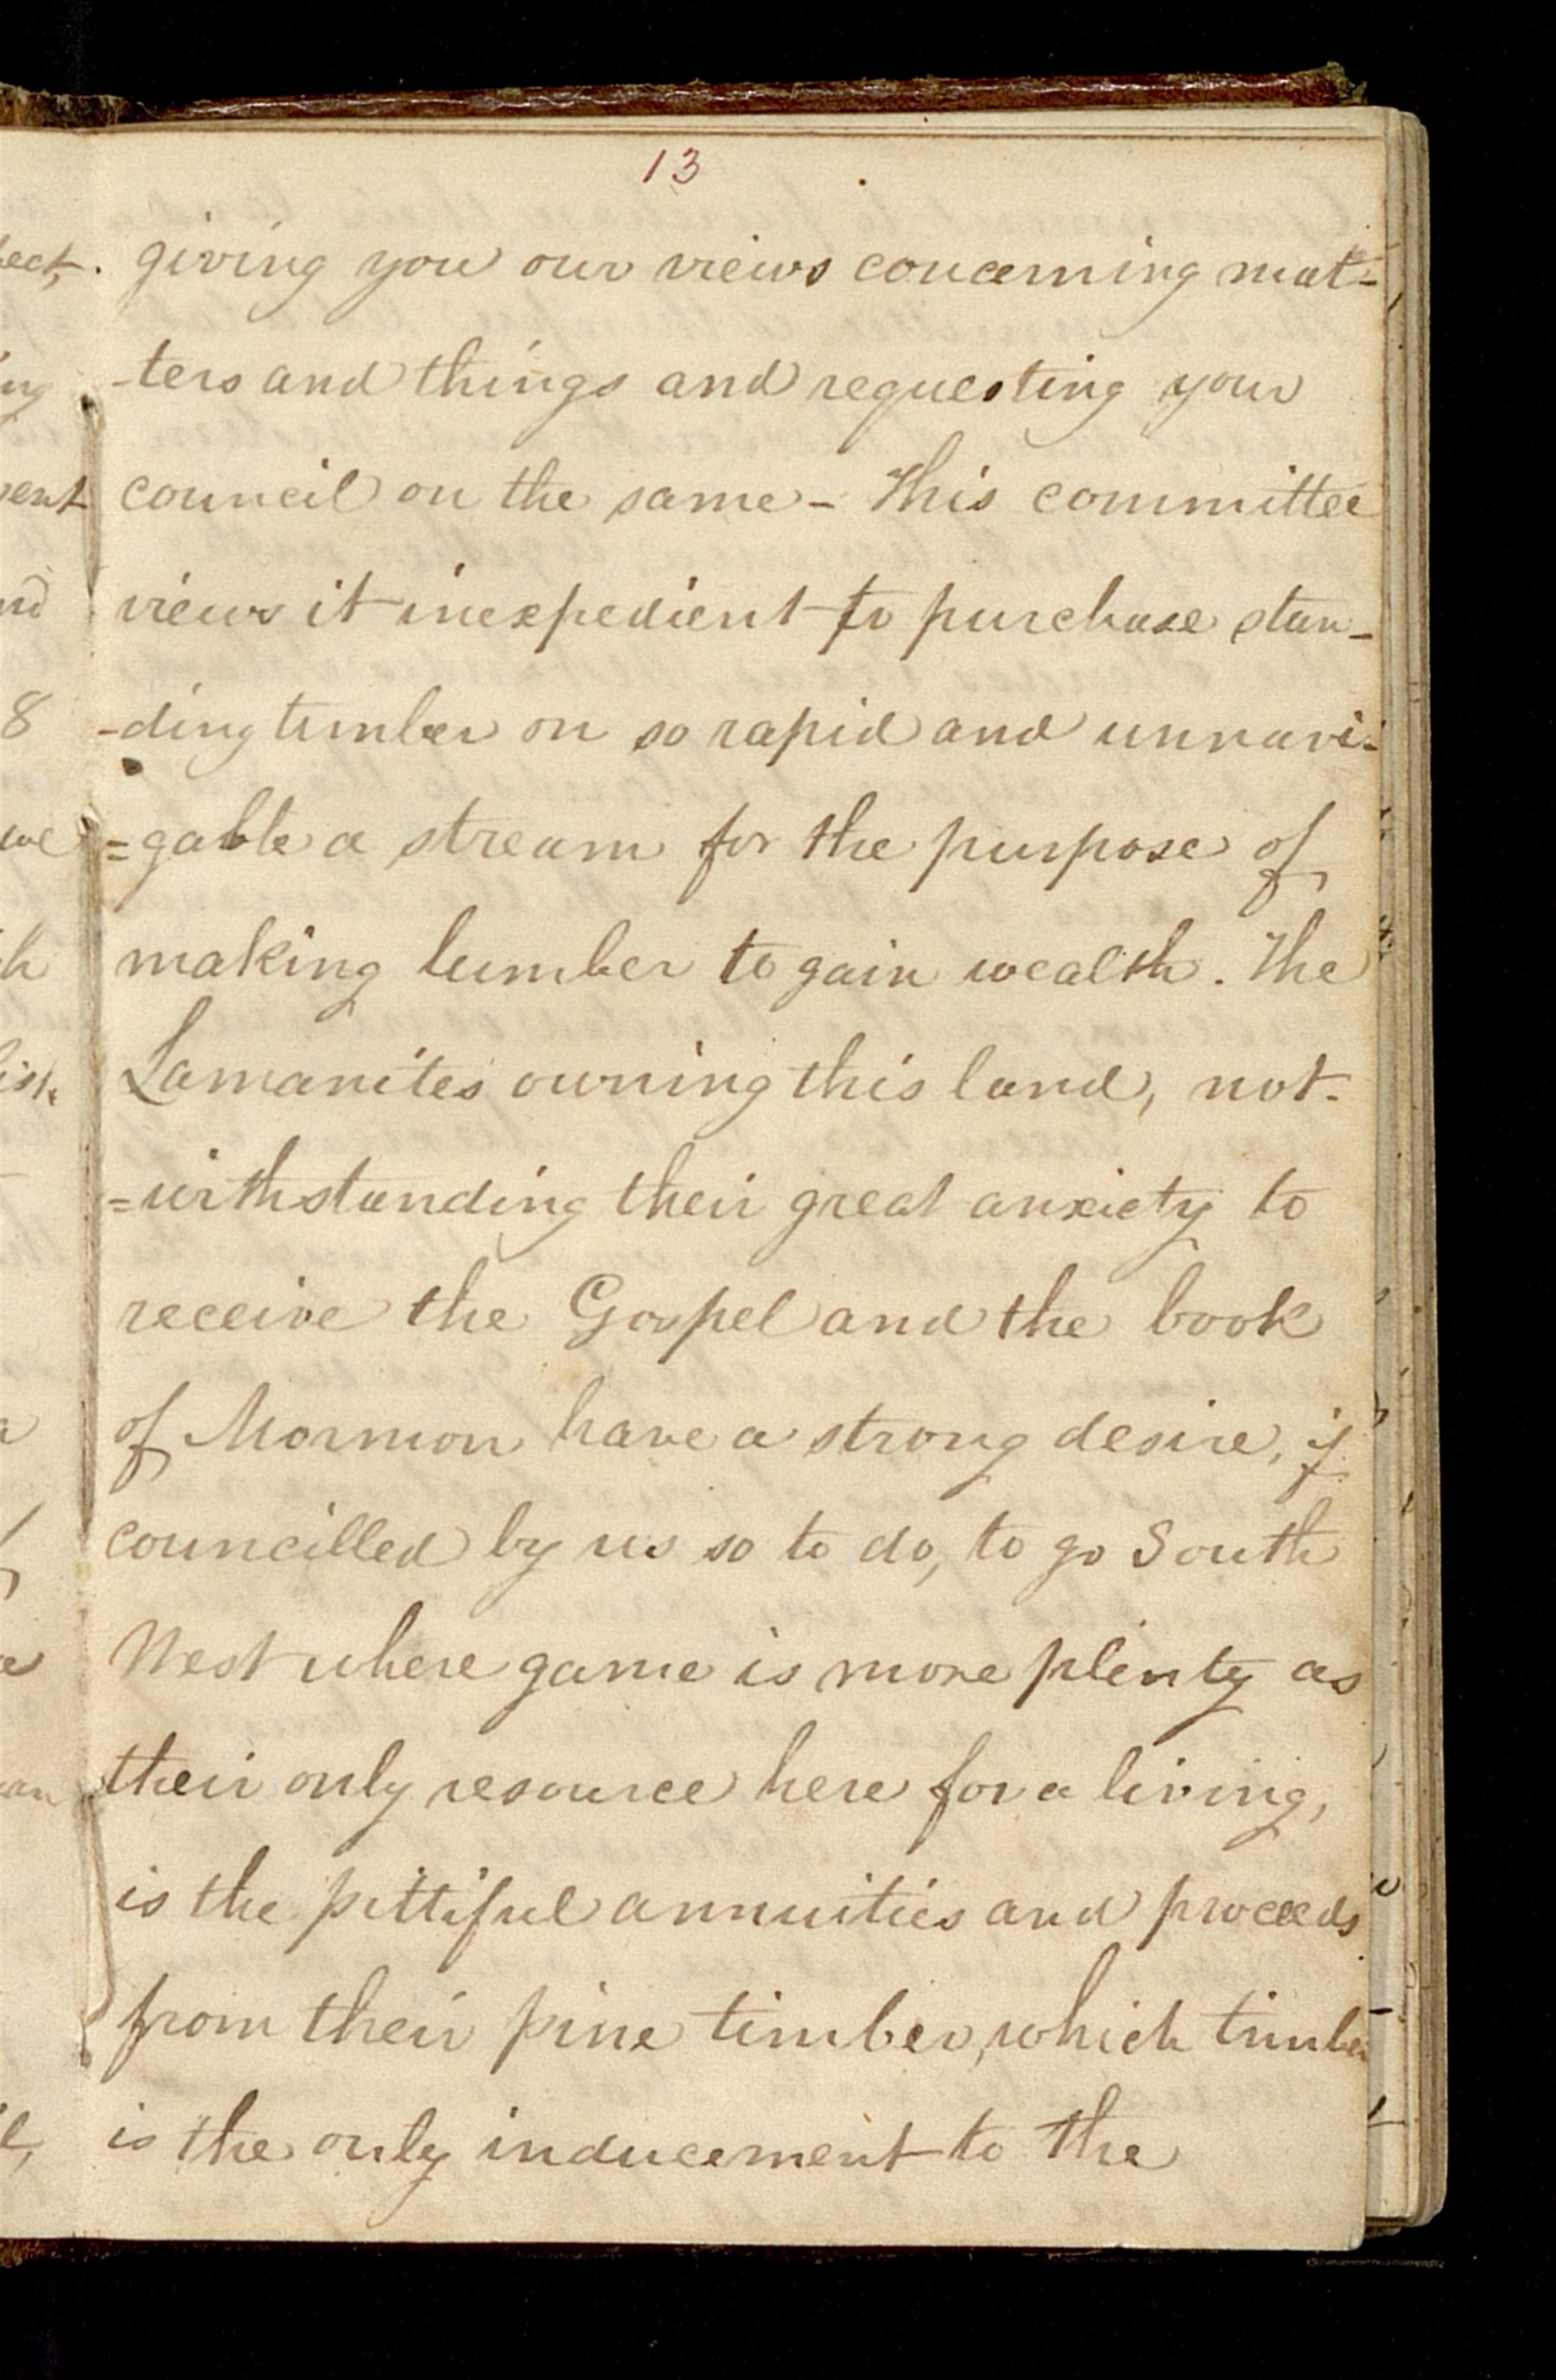 13
giving you our views concerning mat-
-ters and things and requesting your
council on the same - This committee
views it inexpedient to purchase stan-
-ding timber on so rapid and unnavi-
=gable a stream for the purpose of
making lumber to gain wealth. The
Lamanites owning this land, not-
=withstanding their great anxiety to
receive the Gospel and the book
of Mormon have a strong desire, if
councilled by us so to do, to go South
West where game is more plenty as
their only resource here for a living,
is the pittiful annuities and proceeds
from their pine timber, which timber
is the only inducement to the